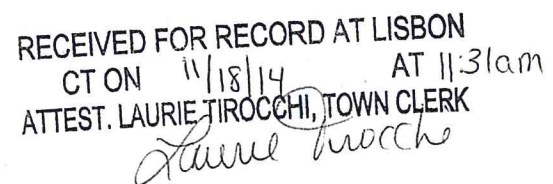 RECEIVED FOR RECORD AT LISBON
CT ON 11/18/14 AT 11:31am
ATTEST. LAURIE TIROCCHI, TOWN CLERK
Laurie Tirocchi